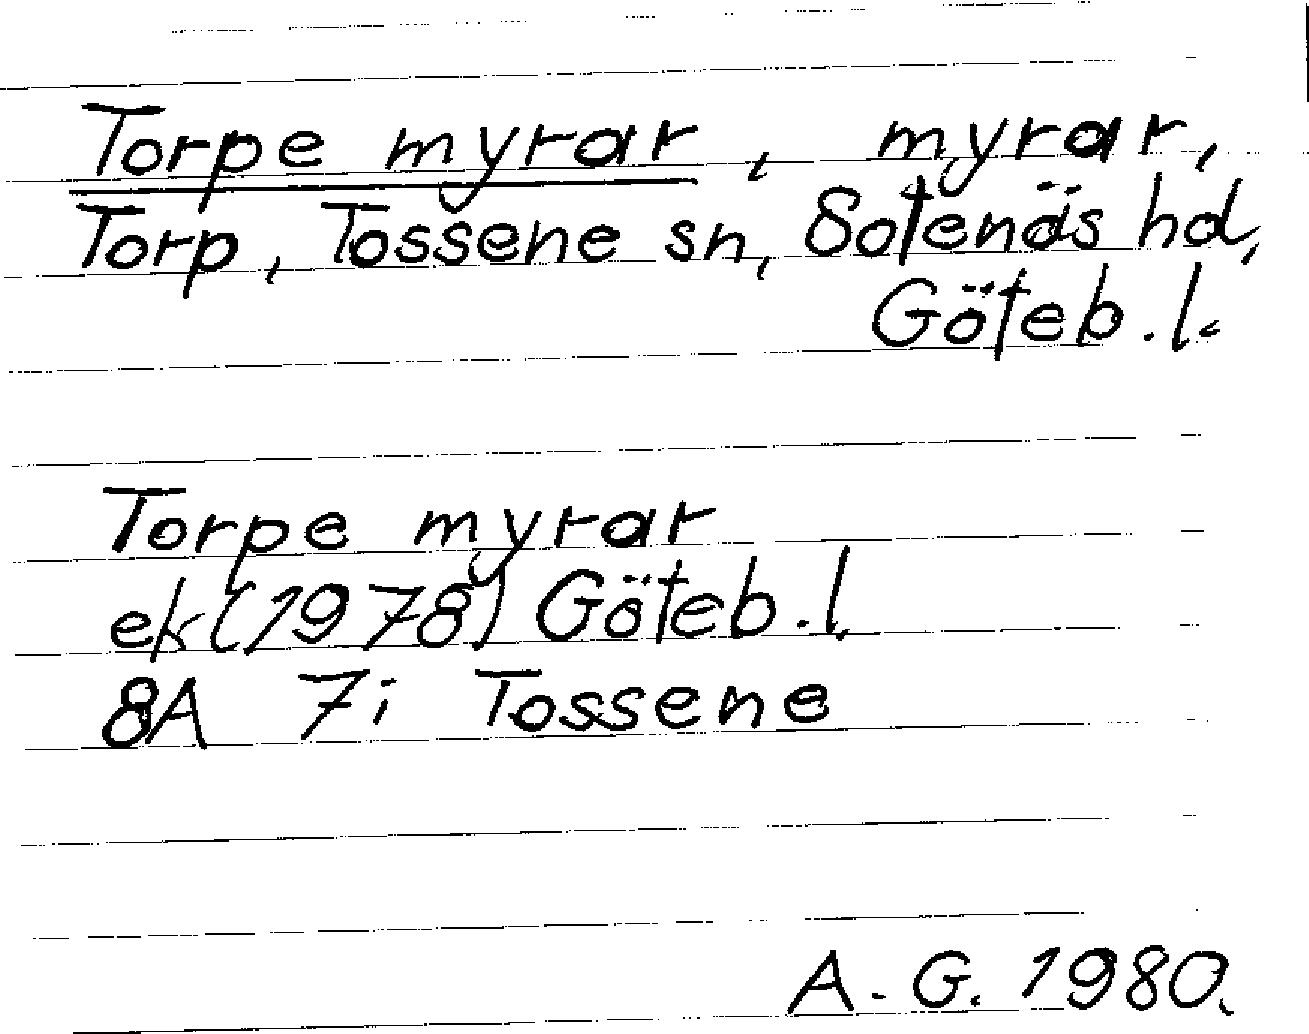 Torpe myrar, myrar,
Torp, Tossene sn, Sotenäs hd,
Göteb. l.
Torpe myrar
ek (1978) Göteb. l.
8A 7i Tossene
A. G. 1980.